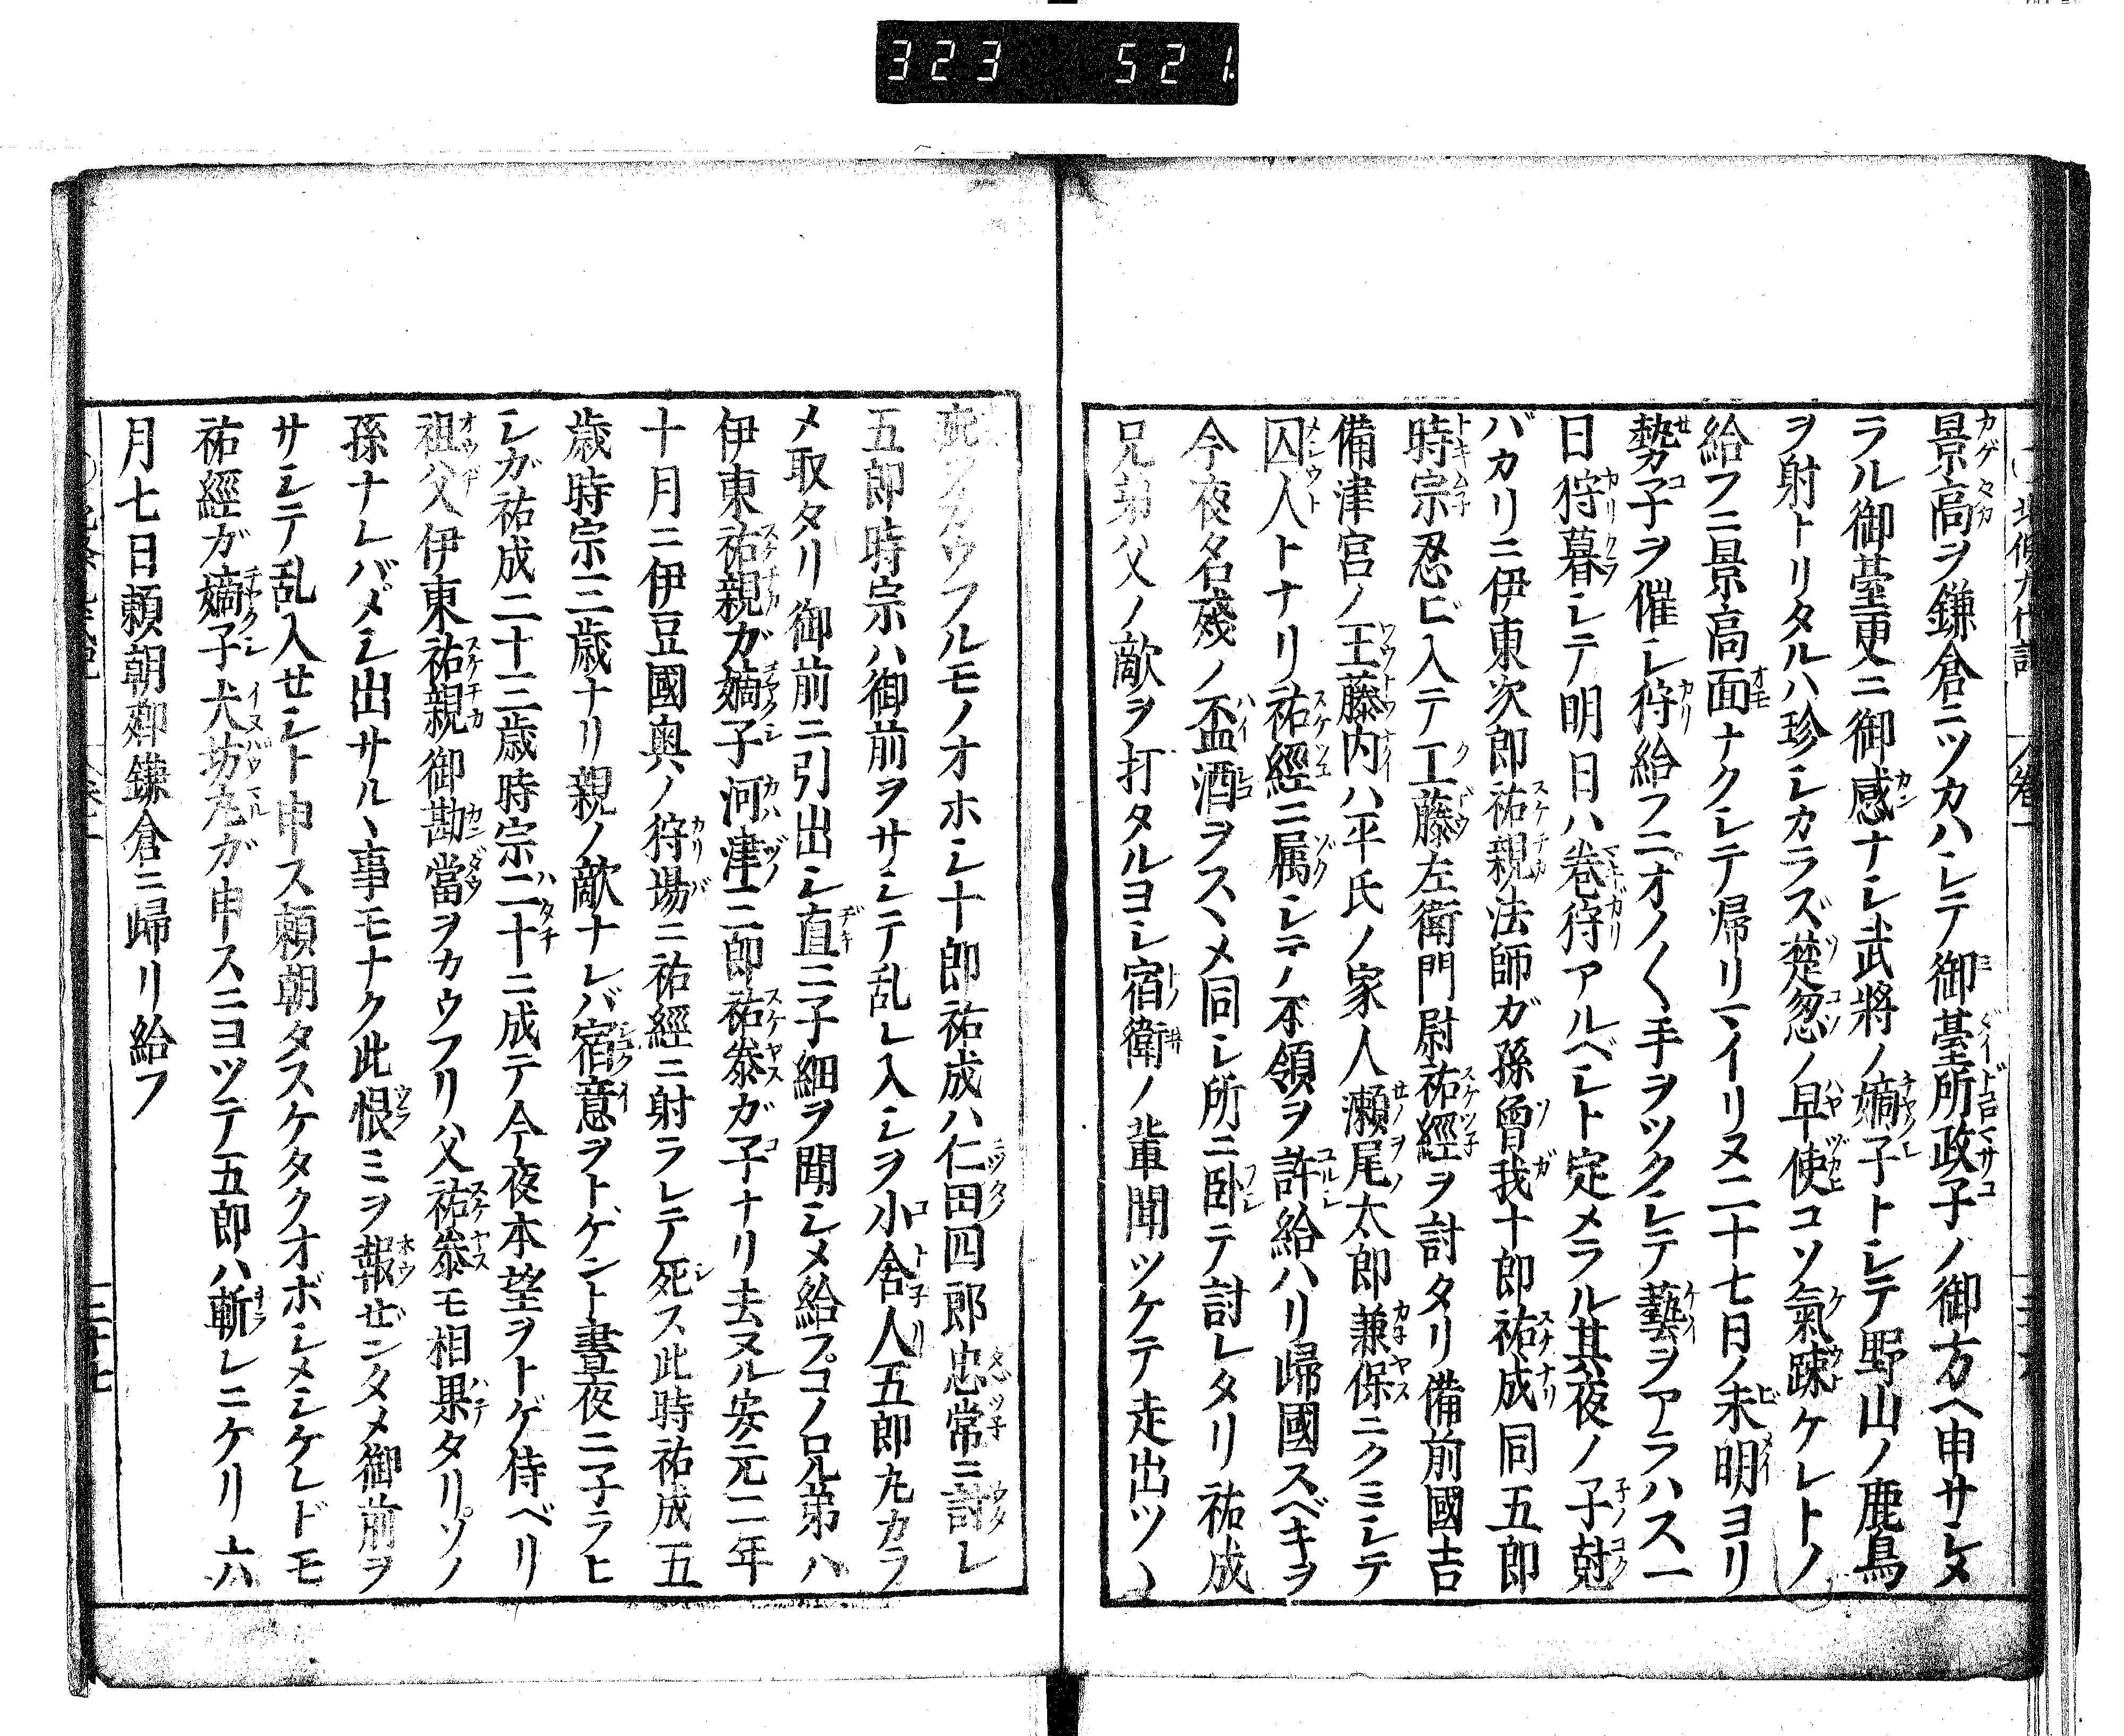 323 521
景高ヲ鎌倉ニツカハシテ御臺所政子ノ御方ヘ申サシメ
ラル御臺更ニ御感ナシ武將ノ嫡子トシテ野山ノ鹿鳥
ヲ射トリタルハ珍シカラズ楚忽ノ早使コソ氣疎ケレトノ
給フニ景高面ナクシテ帰リマイリヌ二十七日ノ未明ヨリ
勢子ヲ催シ狩給フニオノ〱手ヲツクシテ藝ヲアラハス一
日狩暮シテ明日ハ巻狩アルベシト定メラル其夜ノ子尅
バカリニ伊東次郎祐親法師ガ孫曾我十郎祐成同五郎
時宗忍ビ入テ工藤左衛門尉祐經ヲ討タリ備前國吉
備津宮ノ王藤内ハ平氏ノ家人瀬尾太郎兼保ニクミシテ
囚人トナリ祐經ニ属シテノ本領ヲ許給ハリ歸國スベキヲ
今夜名殘ノ盃酒ヲスヽメ同シ所ニ卧テ討レタリ祐成
兄弟父ノ敵ヲ打タルヨシ宿衛ノ輩聞ツケテ走出ツヽ
疵ヲカウフルモノオホシ十郎祐成ハ仁田四郎忠常ニ討レ
五郎時宗ハ御前ヲサシテ乱レ入シヲ小舎人五郎丸カラ
メ取タリ御前ニ引出シ直ニ子細ヲ聞シメ給フコノ兄弟ハ
伊東祐親ガ嫡子河津三郎祐泰ガ子ナリ去ヌル安元二年
十月ニ伊豆國奥ノ狩場ニ祐經ニ射ラレテ死ス此時祐成五
歳時宗三歳ナリ親ノ敵ナレバ宿意ヲトゲント晝夜ニ子ラヒ
シガ祐成二十三歳時宗二十ニ成テ今夜本望ヲトゲ侍ベリ
祖父伊東祐親御勘當ヲカウフリ父祐泰モ相果タリソノ
孫ナレバメシ出サルヽ事モナク此恨ミヲ報ゼンタメ御前ヲ
サシテ乱入セシト申ス頼朝タスケタクオボシメシケレドモ
祐經ガ嫡子犬坊丸ガ申スニヨツテ五郎ハ斬レニケリ六
月七日頼朝郷鎌倉ニ歸リ給フ